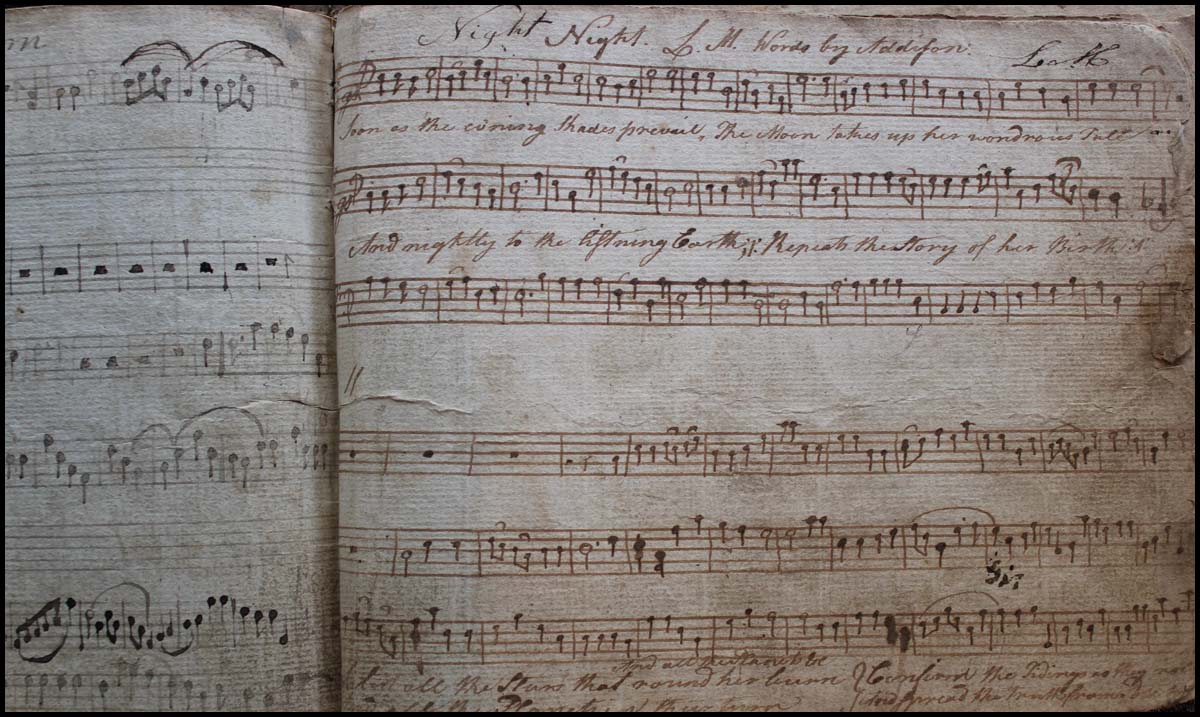 Night Night. L. M. Words by Addison.
Soon as the evining Shades prevail, The Moon takes up her wondrous Tale
And nightly to the listning Earth :||: Repeats the Story of her Birth :||:
And all the Planets
all the Stars that round her burn Confirm the Tidings as they
all the Planets in their turn And spread the truth from